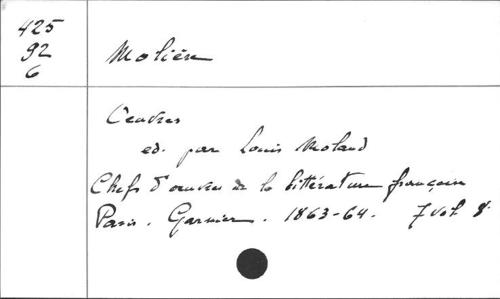 425
92
6
Molière
Oeuvres
ed. par Louis Moland
Chefs d'oeuvre de la littérature française
Paris. Garnier. 1863-64. 7 vol. 8°